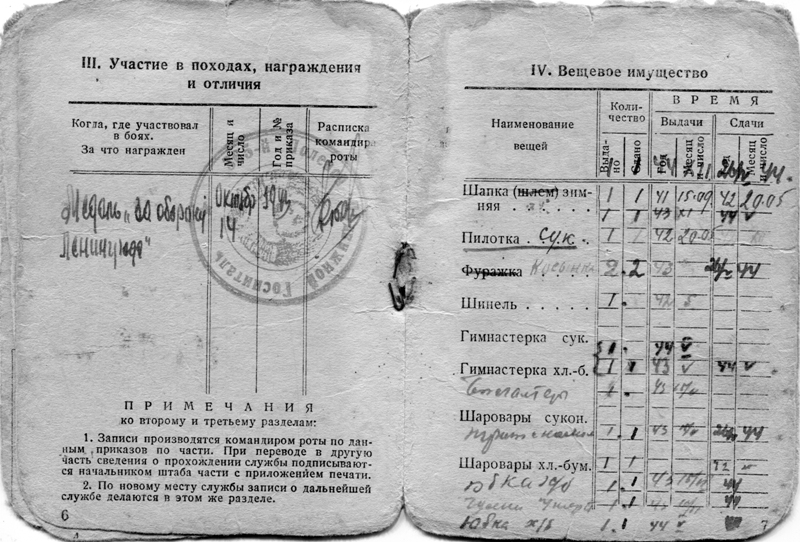 III. Участие в походах, награждения
и отличия
Когда, где участвовал
в боях.
За что награжден
Месяц и
число
Год и №
приказа
Расписка
командира
роты
Медаль „За оборону
Ленинграда"
Октябрь
14
1943
Госпиталь
ПРИМЕЧАНИЯ
ко второму и третьему разделам:
1. Записи производятся командиром роты по дан-
ным приказов по части. При переводе в другую
часть сведения о прохождении службы подписывают-
ся начальником штаба части с приложением печати.
2. По новому месту службы записи о дальнейшей
службе делаются в этом же разделе.
6
IV. Вещевое имущество
Наименование
вещей
Коли-
чество
ВРЕМЯ
Выдачи
Сдачи
Выда-
но
Сдано
Год
Месяц
и число
Месяц
и число
Шапка (шлем) зим- 1 1 41 15.09 42 20.05
няя . 1 1 43 XI 44 V
Пилотка . сук. 1 1 42 20.05
Фуражка Косынка 2 . 2 43 44
Шинель . . . . . 1 . 42
Гимнастерка сук. 1 . 44 V
Гимнастерка хл.-б. 1 1 43 V 44 V
2 . 43
Шаровары сукон.
1 . 1 43 44
Шаровары хл.-бум. 1 1
Юбка х/б 1 . 1 43 44
1 . 1 43 44
Юбка х/б 1 . 1 44 V
7